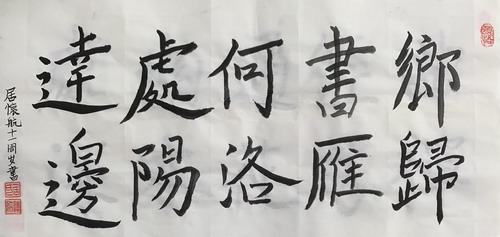 鄉書何處達
歸雁洛陽邊
居懷航十一周岁書